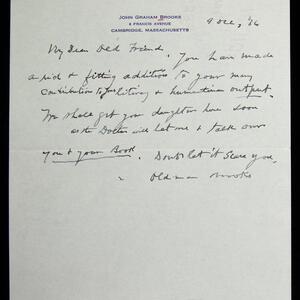 JOHN GRAHAM BROOKS
8 FRANCIS AVENUE
CAMBRIDGE, MASSACHUSETTS
9 Dec, '36
My Dear Old Friend. You have made
a rich & fitting addition to your many
contributions to literary & humanitarian output.
We shall get your daughter here soon
as the Doctor will let me & talk over
you & your Book. Don't let it scare you.
Old man Brooks